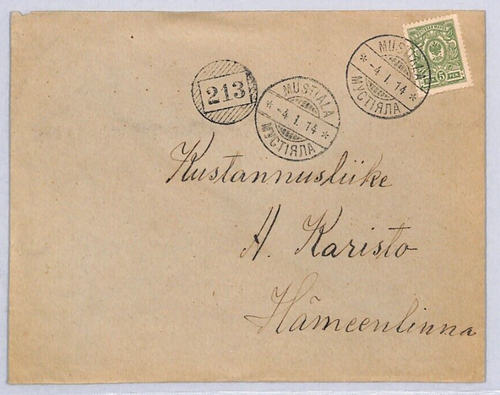 MUSTIALA
* -4.I.14 *
МУСТІЯЛА
5 PEN
213
MUSTIALA
* -4.I.14 *
МУСТІЯЛА
Kustannusliike
A. Karisto
Hämeenlinna